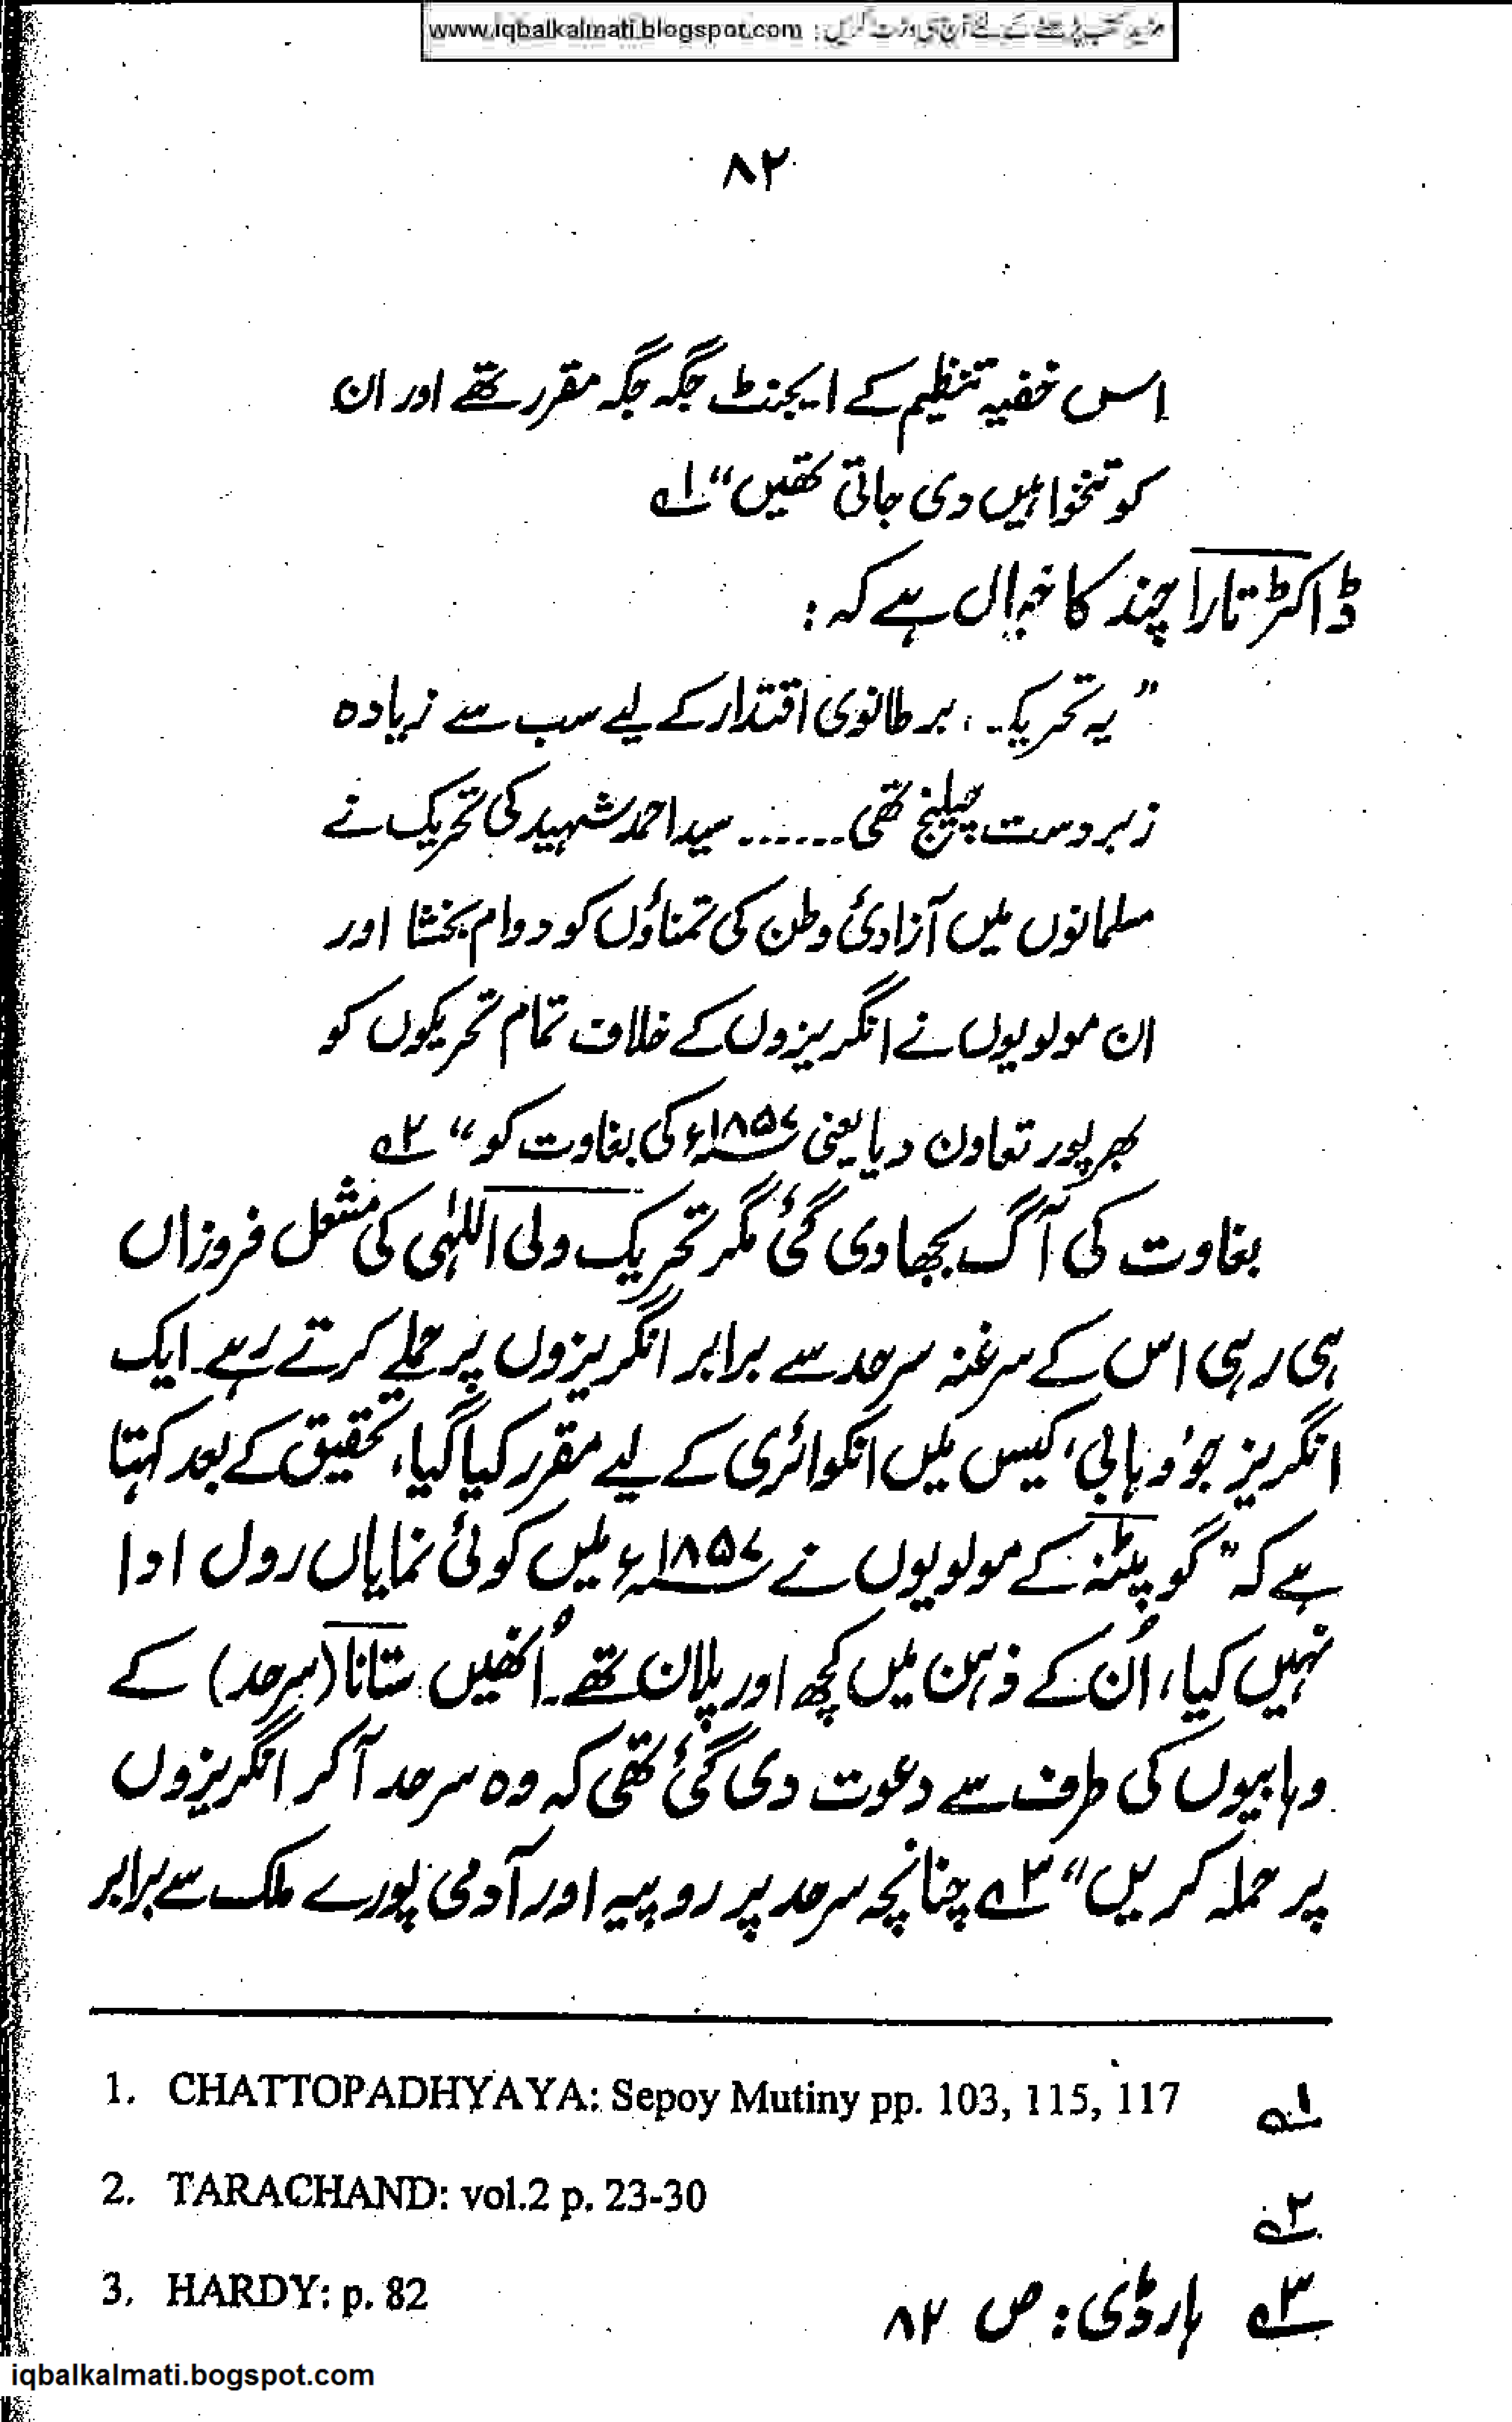 www.iqbalkalmati.blogspot.com : مزید کتب پڑھنے کے لئے آج ہی وزٹ کریں
۸۲
اس خفیہ تنظیم کے ایجنٹ جگہ جگہ مقرر تھے اور ان
کو تنخواہیں دی جاتی تھیں“ ۱؎
ڈاکٹر تارا چند کا خیال ہے کہ :
”یہ تحریک، برطانوی اقتدار کے لیے سب سے زیادہ
زبردست چیلنج تھی ۔۔۔۔۔۔ سید احمد شہید کی تحریک نے
مسلمانوں میں آزادیٔ وطن کی تمناؤں کو دوام بخشا اور
ان مولویوں نے انگریزوں کے خلاف تمام تحریکوں کو
بھرپور تعاون دیا یعنی ۱۸۵۷ء کی بغاوت کو“ ۲؎
بغاوت کی آگ بجھا دی گئی مگر تحریک ولی اللہی کی مشعل فروزاں
ہی رہی اس کے سرغنہ سرحد سے برابر انگریزوں پر حملے کرتے رہے۔ ایک
انگریز جو ’وہابی‘ کیس میں انکوائری کے لیے مقرر کیا گیا، تحقیق کے بعد کہتا
ہے کہ ”گو پٹنہ کے مولویوں نے ۱۸۵۷ء میں کوئی نمایاں رول ادا
نہیں کیا، اُن کے ذہن میں کچھ اور پلان تھے۔ اُنھیں ستانا (سرحد) کے
وہابیوں کی طرف سے دعوت دی گئی تھی کہ وہ سرحد آکر انگریزوں
پر حملہ کریں“ ۳؎ چنانچہ سرحد پر روپیہ اور آدمی پورے ملک سے برابر
1. CHATTOPADHYAYA: Sepoy Mutiny pp. 103, 115, 117 ۱؎
2. TARACHAND: vol.2 p. 23-30 ۲؎
3. HARDY: p. 82 ۳؎ ہارڈی: ص ۸۲
iqbalkalmati.bogspot.com